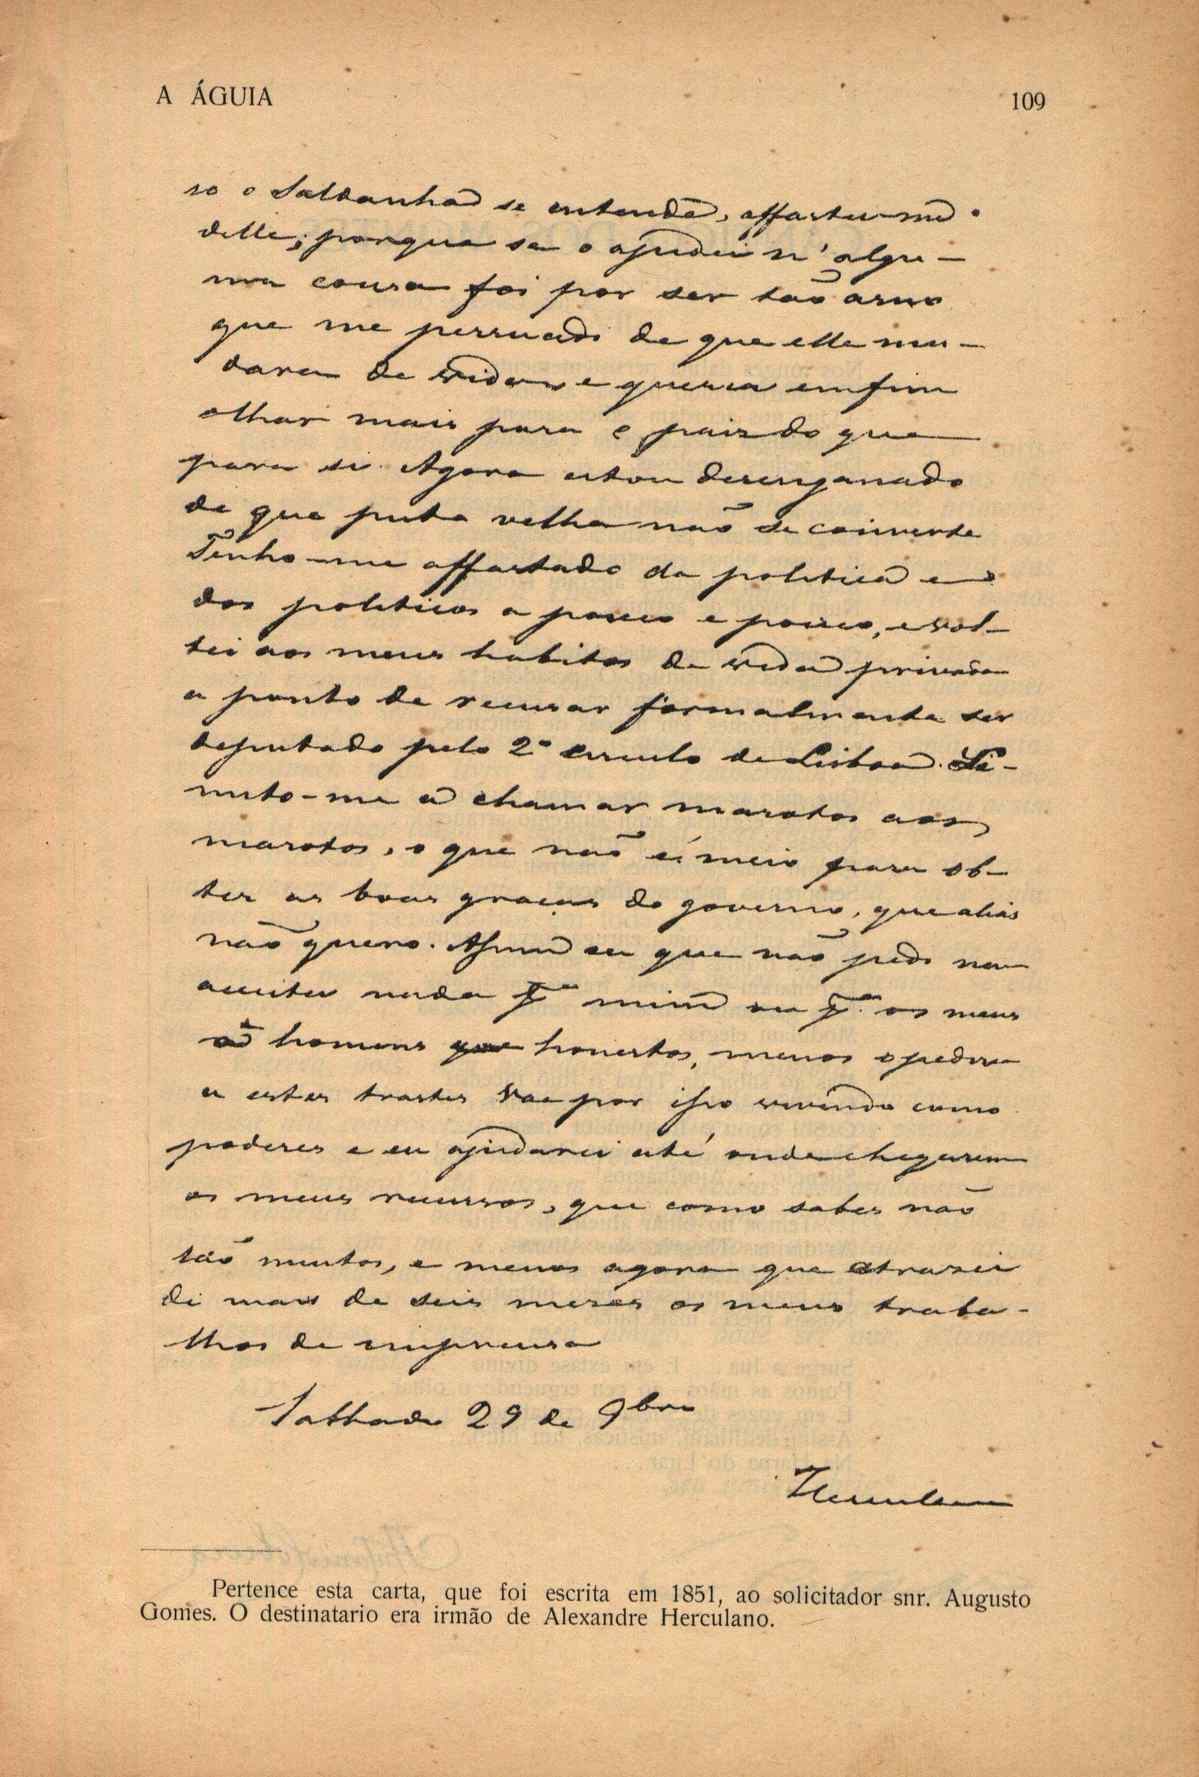 A ÁGUIA
109
so o Saldanha se entende, affastei-me
delle; porque se o ajudei n'algu-
ma cousa foi por ser tão asno
que me persuadi de que elle mu-
dara de vida e queria emfim
olhar mais para o paiz do que
para si. Agora estou desenganado
de que puta velha não se converte
Tenho-me affastado da politica e
dos politicos a pouco e pouco, e vol-
tei aos meus habitos de vida privada
a ponto de recusar formalmente ser
deputado pelo 2º circulo de Lisboa. Li-
mito-me a chamar marotos aos
marotos, o que não é meio para ob-
ter as boas graças do governo, que aliás
não quero. Assim eu que não pedi nem
aceitei nada pª mim ou pª os meus
a homens honestos, menos o pedirei
a estes trastes Vae por isso vivendo como
poderes e eu ajudarei até onde chegarem
os meus recursos, que como sabes não
são muitos, e menos agora que atrazei
de mais de seis mezes os meus traba-
lhos de imprensa
Sabbado 29 de 9bro
Herculano
Pertence esta carta, que foi escrita em 1851, ao solicitador snr. Augusto
Gomes. O destinatario era irmão de Alexandre Herculano.